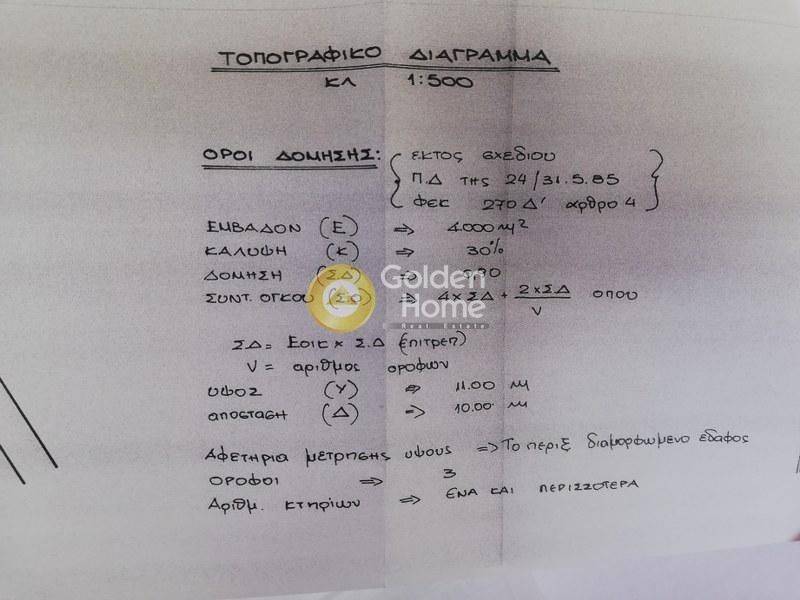 ΤΟΠΟΓΡΑΦΙΚΟ ΔΙΑΓΡΑΜΜΑ
ΚΛ 1:500
ΟΡΟΙ ΔΟΜΗΣΗΣ: { ΕΚΤΟΣ σχεδιου
Π.Δ της 24/31.5.85
ΦΕΚ 270 Δ' αρθρο 4 }
ΕΜΒΑΔΟΝ (Ε) ⇒ 4.000 μ²
ΚΑΛΥΨΗ (Κ) ⇒ 30%
ΔΟΜΗΣΗ (Σ.Δ) ⇒
ΣΥΝΤ. ΟΓΚΟΥ ⇒ 4×ΣΔ + 2×ΣΔ/ν οπου
Golden Home
Real Estate
Σ.Δ = Εοικ × Σ.Δ (επιτρεπ)
ν = αριθμος οροφων
υψος (Υ) ⇒ 11.00 μ
αποσταση (Δ) ⇒ 10.00 μ
Αφετηρια μετρησης υψους ⇒ Το περιξ διαμορφωμενο εδαφος
ΟΡΟΦΟΙ ⇒ 3
Αριθμ. κτηρίων ⇒ ΕΝΑ ΚΑΙ ΠΕΡΙΣΣΟΤΕΡΑ